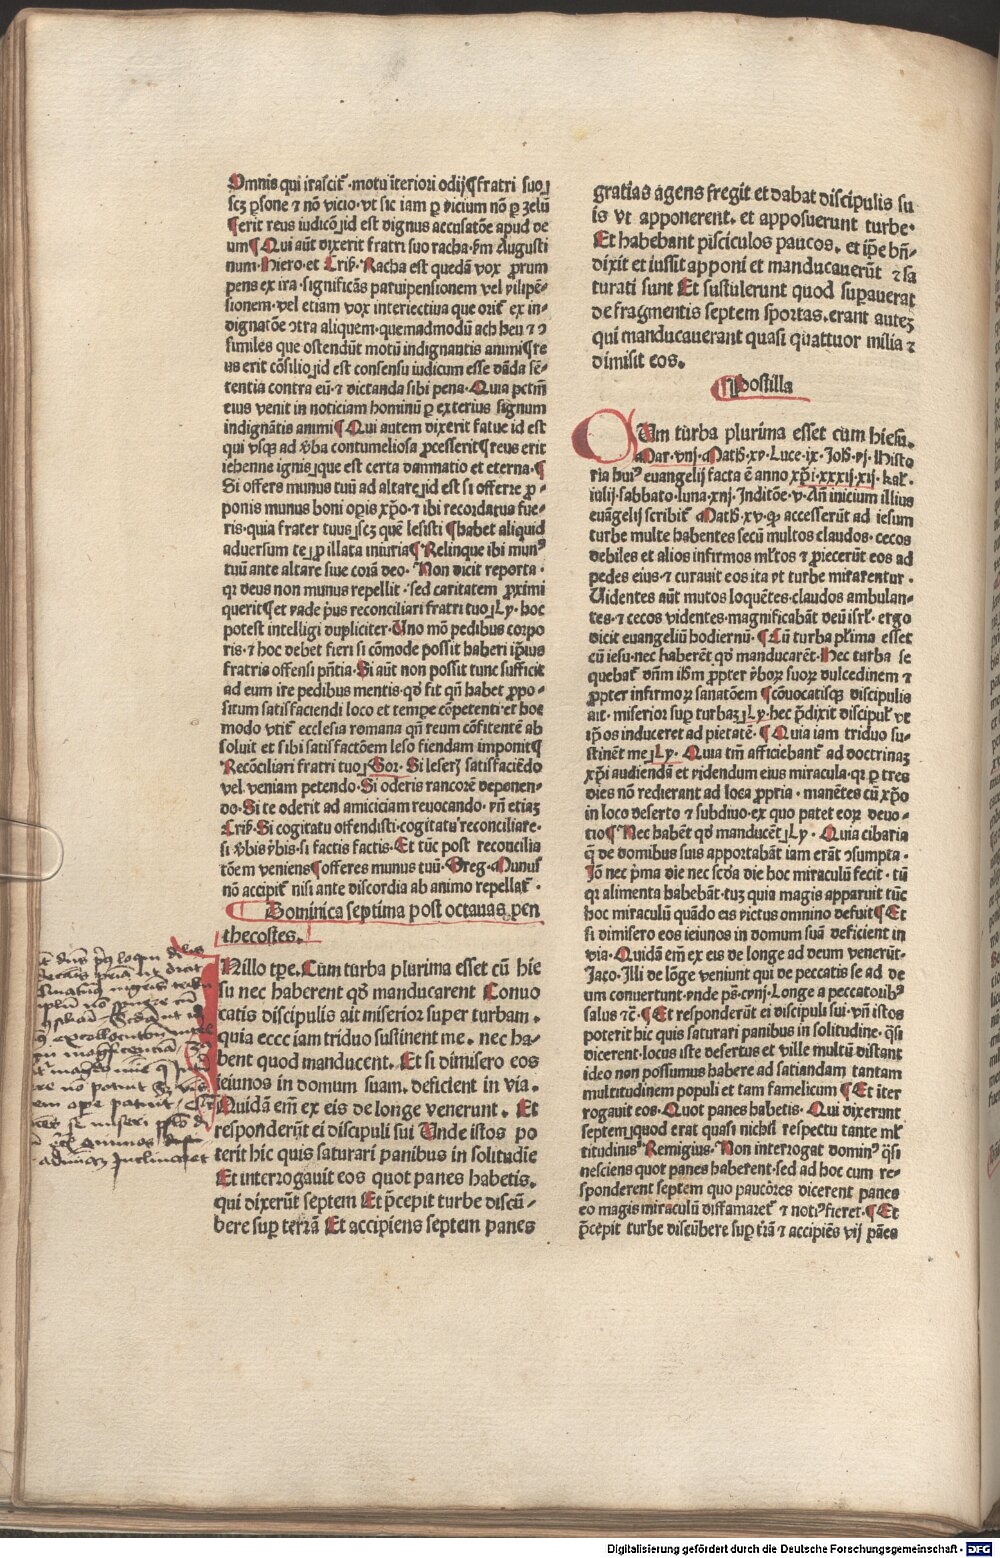 Omnis qui irascit᷑ ·motu īteriori odij ¶ fratri suo ⁊
scꝫ ꝑsone ⁊ nō vicio·vt sic iam ꝑ vicium nō ꝑ zelū
¶ erit reus iudico ⁊ id est dignus accusatōe apud de
um ¶ Qui aūt dixerit fratri suo racha·ẜm Augusti
num·Hiero·et Crisͦ·Racha est quedā vox ꝓrum
pens ex ira·significās paruipensionem vel vilipē⸗
sionem·vel etiam vox interiectiua que orit᷑ ex in⸗
dignatōe ↄtra aliquem·quemadmodū ach heu ⁊ ↄ
similes que ostendūt motū indignantis animi ¶ re
us erit cōsilio ⁊ id est consensu iudicum esse dāda sē⸗
tentia contra eū·⁊ dictanda sibi pena·Quia pctm̄
eius venit in noticiam hominū ꝑ exterius signum
indignātis animi ¶ Qui autem dixerit fatue id est
qui vsqꝫ ad v̄ba contumeliosa ꝓcesserit ¶ reus erit
iehenne ignis ⁊ que est certa damnatio et eterna·¶
Si offers munus tuū ad altare ⁊ id est si offerre ꝓ⸗
ponis munus boni oꝑis xp̄o·⁊ ibi recordatus fue⸗
ris·quia frater tuus ⁊ scꝫ quē lesisti ¶ habet aliquid
aduersum te ⁊ ꝓ illata iniuria ¶ Relinque ibi munꝰ
tuū ante altare siue corā deo· Non dicit reporta·
qꝛ deus non munus repellit·sed caritatem ꝓximi
querit ¶ et vade p̄us reconciliari fratri tuo ⁊ Ly·hoc
potest intelligi dupliciter·Uno mō pedibus corpo
ris·⁊ hoc debet fieri si cōmode possit haberi ip̄ius
fratris offensi pn̄tia·Si aūt non possit tunc sufficit
ad eum ire pedibus mentis·qd̄ fit qn̄ habet ꝓpo⸗
situm satisfaciendi loco et tempe cōpetenti·et hoc
modo vtit᷑ ecclesia romana qn̄ reum cōfitentē ab
soluit et sibi satisfactōem leso fiendam imponit ¶
Recōciliari fratri tuo ⁊ Gor·Si leserꝫ satisfaciēdo
vel veniam petendo·Si oderis rancorē deponen⸗
do·Si te oderit ad amiciciam reuocando·vn̄ etiaꝫ
Crisͦ·Si cogitatu offendisti·cogitatu reconciliare·
si v̄bis v̄bis·si factis factis·Et tūc post reconcilia
tōem veniens ¶ offeres munus tuū·Greg·Munus
nō accipit᷑ nisi ante discordia ab animo repellat᷑·
Dominica septima post octauas pen
thecostes.
Nillo tꝑe·Cūm turba plurima esset cū hie
su nec haberent qd̄ manducarent Conuo
catis discipulis ait misereor super turbam·
quia ecce iam triduo sustinent me·nec ha⸗
bent quod manducent·Et si dimisero eos
ieiunos in domum suam·deficient in via·
Quidā em̄ ex eis de longe venerunt·Et
responderūt ei discipuli sui Unde istos po
terit hic quis saturari panibus in solitudie
Et interrogauit eos quot panes habetis·
qui dixerūt septem Et p̄cepit turbe discū⸗
bere suꝑ terrā Et accipiens septem panes
gratias agens fregit et dabat discipulis su
is vt apponerent·et apposuerunt turbe·
Et habebant pisciculos paucos·et ip̄e bn̄⸗
dixit et iussit apponi et manducauerūt ⁊ sa
turati sunt Et sustulerunt quod suꝑauerat
de fragmentis septem sportas·erant auteꝫ
qui manducauerant quasi quattuor milia ⁊
dimisit eos·
Postilla
Cum turba plurima esset cum hiesu·
Mar·viij·Math̄·xv·Luce·ix·Joh̄·vj·Histo
ria huiꝰ euangelij facta ē anno xp̄i·xxxij·xij·kal̄·
iulij·sabbato·luna·xiij·Inditōe·v·An̄ inicium illius
euāgelij scribit᷑ Math̄·xv·qꝙ accesserūt ad iesum
turbe multe habentes secū multos claudos·cecos
debiles et alios infirmos ml̄tos ⁊ ꝓiecerūt eos ad
pedes eius·⁊ curauit eos ita vt turbe mirarentur·
Uidentes aūt mutos loquētes·claudos ambulan⸗
tes·⁊ cecos videntes·magnificabāt deū isrl̄·ergo
dicit euangeliū hodiernū·¶ Cū turba pl̄rima esset
cū iesu·nec haberēt qd̄ manducarēt·Hec turba se
quebat᷑ dn̄m ih̄m ꝓpter v̄boꝝ suoꝝ dulcedinem ⁊
ꝓpter infirmoꝝ sanatōem ¶ cōuocatisqꝫ discipulis
ait·misereor suꝑ turbaꝫ ⁊ Ly·hec p̄dixit discipul᷑ vt
ip̄os induceret ad pietatē·¶ Quia iam triduo su⸗
stinēt me ⁊ Ly·Quia tm̄ afficiebant᷑ ad doctrinaꝫ
xp̄i audiendā et videndum eius miracula·qꝛ ꝑ tres
dies nō redierant ad loca ꝓpria·manētes cū xp̄o
in loco deserto ⁊ subdiuo·ex quo patet eoꝝ deuo⸗
tio ¶ Nec habēt qd̄ manducēt ⁊ Ly·Quia cibaria
q̄ de domibus suis apportabāt iam erāt ↄsumpta·
Jō nec p̄ma die nec scd̄a die hoc miraculū fecit·tū
qꝛ alimenta habebāt·tuꝫ quia magis apparuit tūc
hoc miraculū quādo eis victus omnino defuit ¶ Et
si dimisero eos ieiunos in domum suā deficient in
via·Quidā em̄ ex eis de longe ad deum venerūt·
Jaco·Illi de lōge veniunt qui de peccatis se ad de
um conuertunt·vnde ps̄·cvnj·Longe a peccatoribꝰ
salus ⁊c̄·¶ Et responderūt ei discipuli sui·vn̄ istos
poterit hic quis saturari panibus in solitudine·q̄si
dicerent·locus iste desertus et ville multū distant
ideo non possumus habere ad satiandam tantam
multitudinem populi et tam famelicum ¶ Et iter
rogauit eos·Quot panes habetis·Qui dixerunt
septem ⁊ quod erat quasi nichil respectu tante ml̄
titudinis·Remigius·Non interrogat dominꝰ q̄si
nesciens quot panes haberent·sed ad hoc cum re⸗
sponderent septem quo pauciores dicerent panes
eo magis miraculū diffamaret᷑ ⁊ notiꝰ fieret·¶ Et
p̄cepit turbe discūbere suꝑ t̄rā ⁊ accipiēs vij panes
Digitalisierung gefördert durch die Deutsche Forschungsgemeinschaft - DFG